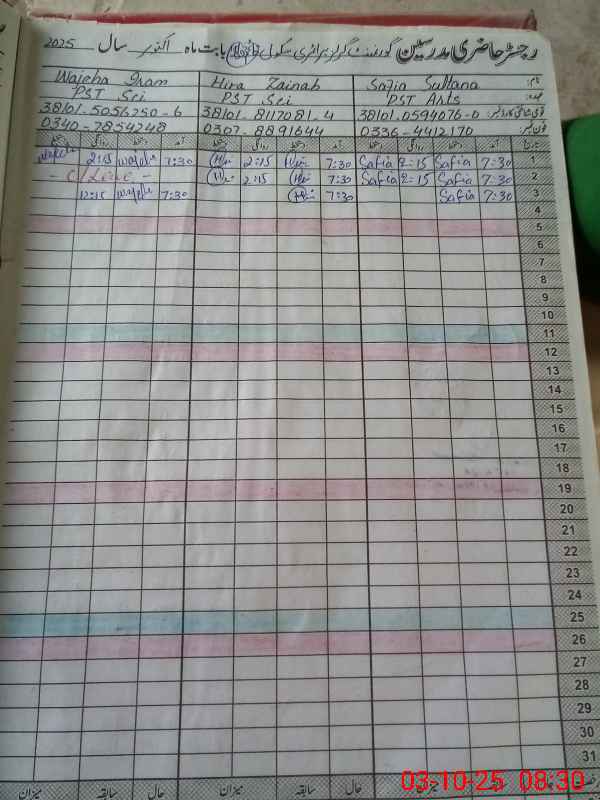 رجسٹر حاضری مدرسین گورنمنٹ گرلز پرائمری سکول بابت ماہ اکتوبر سال 2025
نام: Safia Sultana Hira Zainab Wajeha Inam
عہدہ: PST Arts PST Sci PST Sci
قومی شناختی کارڈ نمبر: 38101-0594076-0 38101-8117081-4 38101-5056250-6
فون نمبر: 0336-4412170 0307-8891644 0340-7854248
تاریخ آمد دستخط روانگی دستخط آمد دستخط روانگی دستخط آمد دستخط روانگی دستخط
1 7:30 Safia 2:15 Safia 7:30 2:15 7:30 2:15
2 7:30 Safia 2:15 Safia 7:30 2:15 - C/Leave -
3 7:30 Safia 7:30 7:30 12:15
4
5
6
7
8
9
10
11
12
13
14
15
16
17
18
19
20
21
22
23
24
25
26
27
28
29
30
31
حال سابقہ میزان حال سابقہ میزان حال سابقہ میزان
03-10-25 08:30